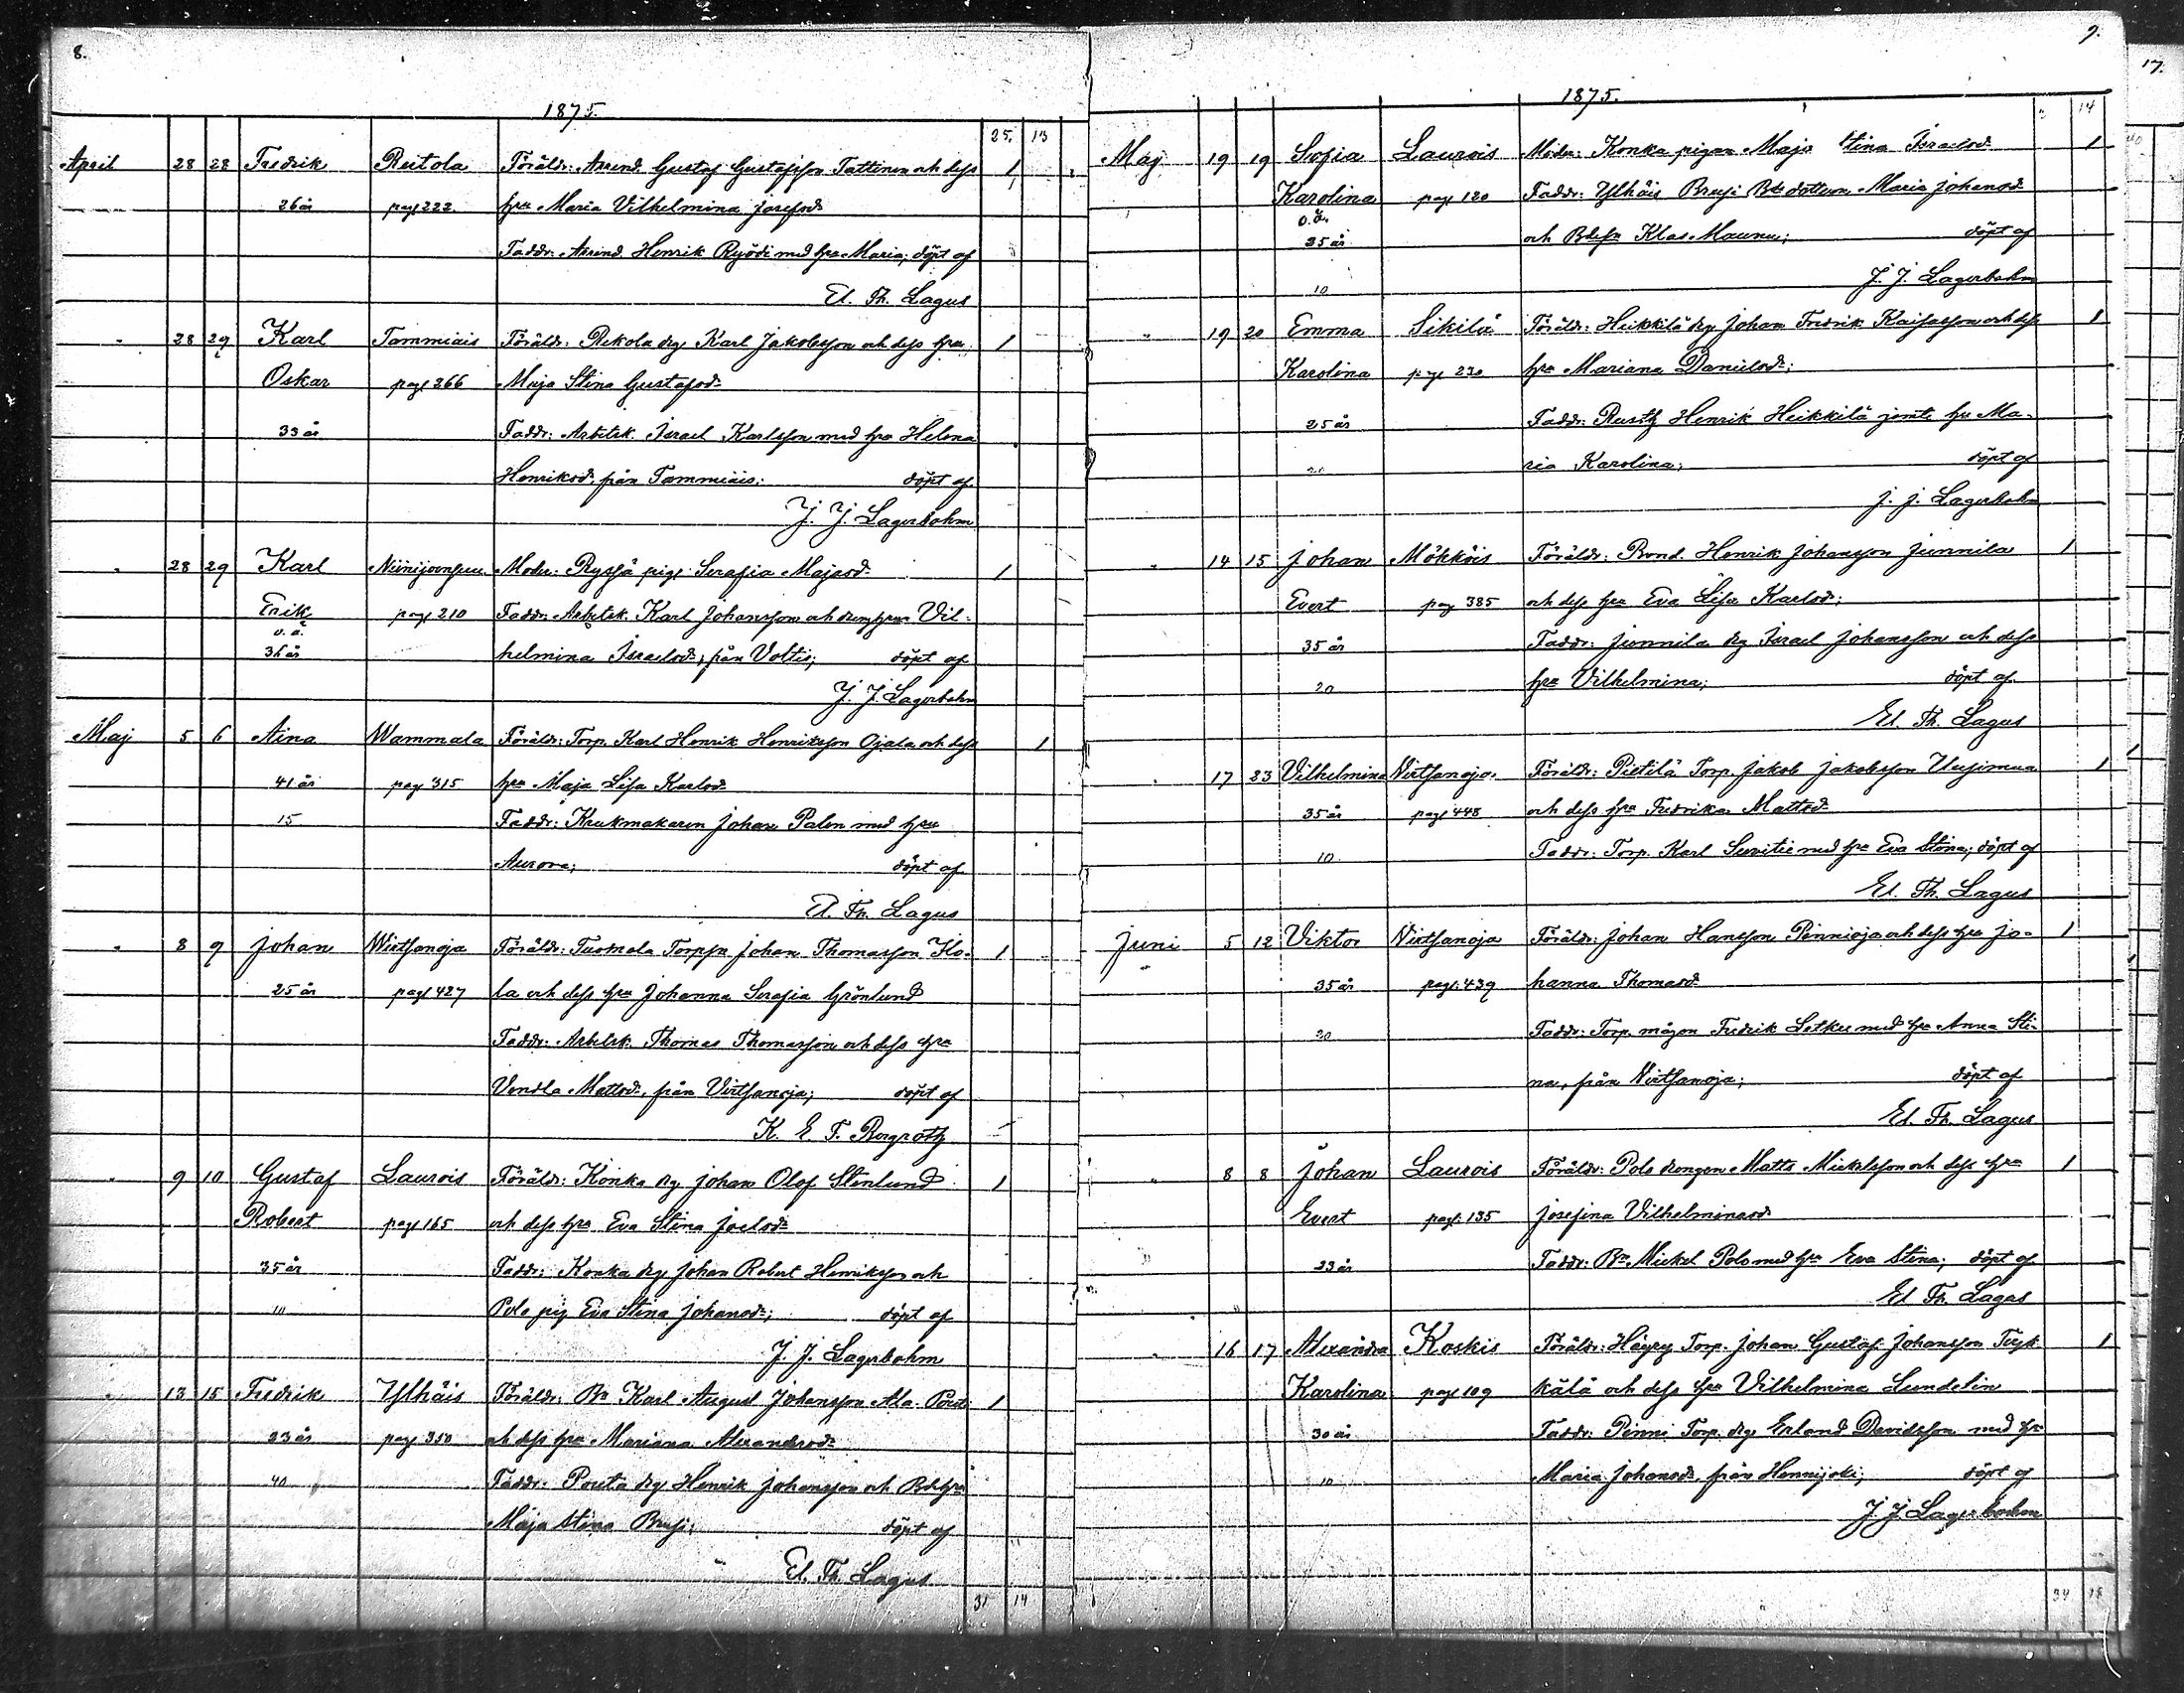 8.
1875.
25. 13
April 28 28 Fredrik Reitola Föräldr: Arrend. Gustaf Gustafsson Tattinen och dess 1
26 år pag 222. hru Maria Vilhelmina Josefsdr
Faddr: Arrend. Henrik Ryödi med hru Maria; döpt af
El. Th. Lagus
" 28 29 Karl Tammiais Föräldr: Rekola drg Karl Jakobsson och dess hru 1
Oskar pag 266 Maja Stina Gustafsdr
33 år Faddr: Arbetsk. Israel Karlsson med hru Helena
Henriksdr från Tammiais; döpt af
J. J. Lagerbohm
" 28 29 Karl Niinijoensuu Moder: Ryssä piga Serafia Majasdr 1
Erik pag 210 Faddr: Arbetsk. Karl Johansson och drenghrun Vil-
o. ä.
36 år helmina Israelsdr, från Voltis; döpt af
J. J. Lagerbohm
Maj 5 6 Aina Wammala Föräldr: Torp. Karl Henrik Henriksson Ojala och dess 1
41 år pag 315 hru Maja Lisa Karlsdr
15 Faddr: Krukmakaren Johan Palen med hru
Aurora; döpt af
El. Th. Lagus
" 8 9 Johan Wirtsanoja Föräldr: Tuomola Torpsn Johan Thomasson Ko- 1
25 år pag 427 la och dess hru Johanna Serafia Grönlund
Faddr: Arbetsk. Thomas Thomasson och dess hru
Vendla Mattsdr, från Virtsanoja; döpt af
K. E. F. Bergroth
" 9 10 Gustaf Laurois Föräldr: Konka drg Johan Olof Stenlund 1
Robert pag 165 och dess hru Eva Stina Joelsdr
35 år Faddr: Konka drg Johan Robert Henriksson och
10 Polo pig Eva Stina Johansdr; döpt af
J. J. Lagerbohm
" 13 15 Fredrik Ylhäis Föräldr: Bn Karl August Johansson Ala-Pouta 1
23 år pag 350 och dess hru Mariana Alexandersdr
40 Faddr: Pouta drg Henrik Johansson och Bdehru
Maja Stina Brusi; döpt af
El. Th. Lagus
31 14
9.
1875.
14
Maj 19 19 Sofia Laurois Moder: Konka pigan Maja Stina Israelsdr 1
Karolina pag 120 Faddr: Ylhäis Brusi Bde dottern Maria Johansdr
o. ä.
35 år och Bdesn Klas Maunu; döpt af
10 J. J. Lagerbohm
" 19 20 Emma Sikilä Föräldr: Heikkilä drg Johan Fredrik Kaisasson och dess 1
Karolina pag 230 hru Mariana Danielsdr;
25 år Faddr: Rusth. Henrik Heikkilä jemte hru Ma-
20 ria Karolina; döpt af
J. J. Lagerbohm
" 14 15 Johan Mökköis Föräldr: Bond. Henrik Johansson Junnila 1
Evert pag 385 och dess hru Eva Lisa Karlsdr;
35 år Faddr: Junnila drg Israel Johansson och dess
20 hru Vilhelmina; döpt af
El. Th. Lagus
" 17 23 Vilhelmina Virtsanoja Föräldr: Pietilä Torp. Jakob Jakobsson Uusimaa 1
35 år pag 448 och dess hru Fredrika Mattsdr
10 Faddr: Torp. Karl Suvitie med hru Eva Stina; döpt af
El. Th. Lagus
Juni 5 12 Viktor Virtsanoja Föräldr: Johan Hansson Pennioja och dess hru Jo- 1
35 år pag. 439 hanna Thomasdr
20 Faddr: Torp. mågen Fredrik Letku med hru Anna Sti-
na, från Virtsanoja; döpt af
El. Th. Lagus
" 8 8 Johan Laurois Föräldr: Polo drengen Matts Mickelsson och dess hru 1
Evert pag. 135 Josefina Vilhelminasdr
23 år Faddr: Bn Mickel Polo med hru Eva Stina; döpt af
El. Th. Lagus
" 16 17 Alexandra Koskis Föräldr: Häyry Torp. Johan Gustaf Johansson Tyk- 1
Karolina pag 109 kälä och dess hru Vilhelmina Sundelin
30 år Faddr: Penni Torp. drg Erland Davidsson med hru
10 Maria Johansdr, från Hennijoki; döpt af
J. J. Lagerbohm
34 18
17.